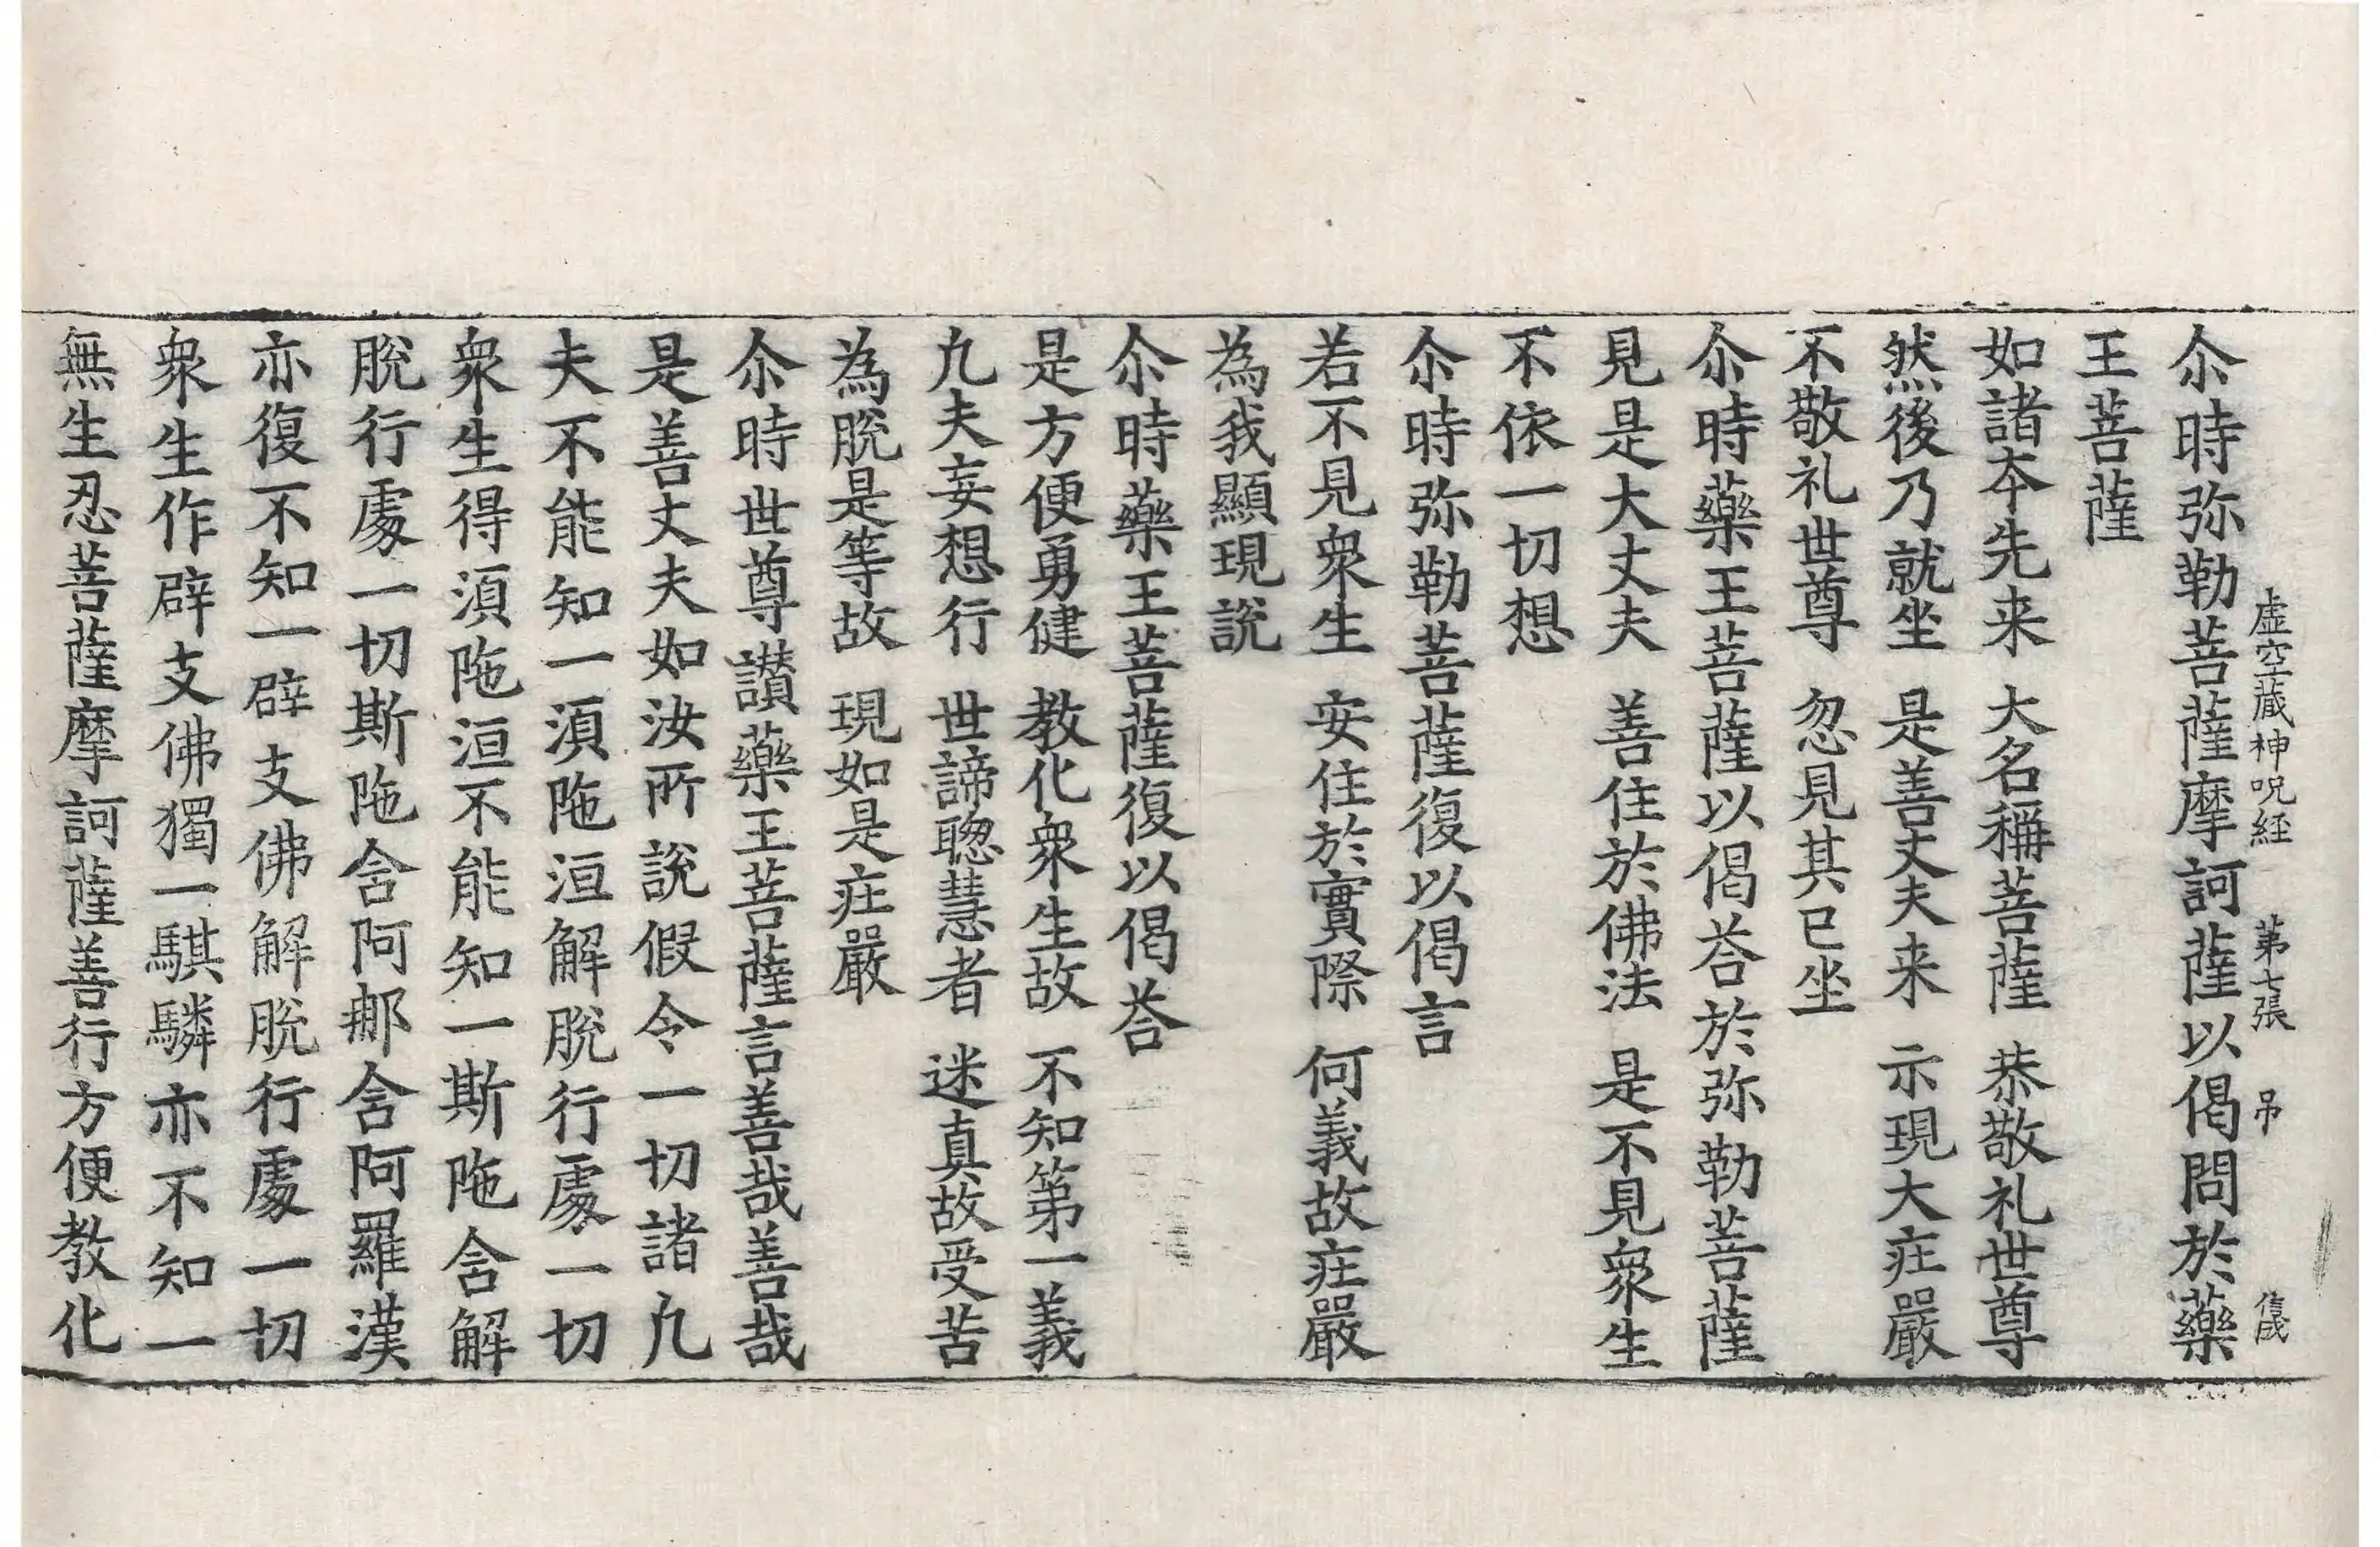 虚空藏神呪経 第七張 吊
尒時弥勒菩薩摩訶薩以偈問於藥
王菩薩
如諸夲先来 大名稱菩薩 恭敬礼世尊
然後乃就坐 是善丈夫来 示現大㽵嚴
不敬礼世尊 忽見其已坐
尒時藥王菩薩以偈荅於弥勒菩薩
見是大丈夫 善住於佛法 是不見衆生
不依一切想
尒時弥勒菩薩復以偈言
若不見衆生 安住於實際 何義故㽵嚴
為我顯現説
尒時藥王菩薩復以偈荅
是方便勇健 教化衆生故 不知第一義
凢夫妄想行 世諦聦慧者 迷真故受苦
為脱是等故 現如是㽵嚴
尒時世尊讃藥王菩薩言善哉善哉
是善丈夫如汝所説假令一切諸凢
夫不能知一湏陁洹解脱行處一切
衆生得湏陁洹不能知一斯陁含解
脱行處一切斯陁含阿𨚗含阿羅漢
亦復不知一辟支佛解脱行處一切
衆生作辟支佛獨一騏驎亦不知一
無生忍菩薩摩訶薩善行方便教化